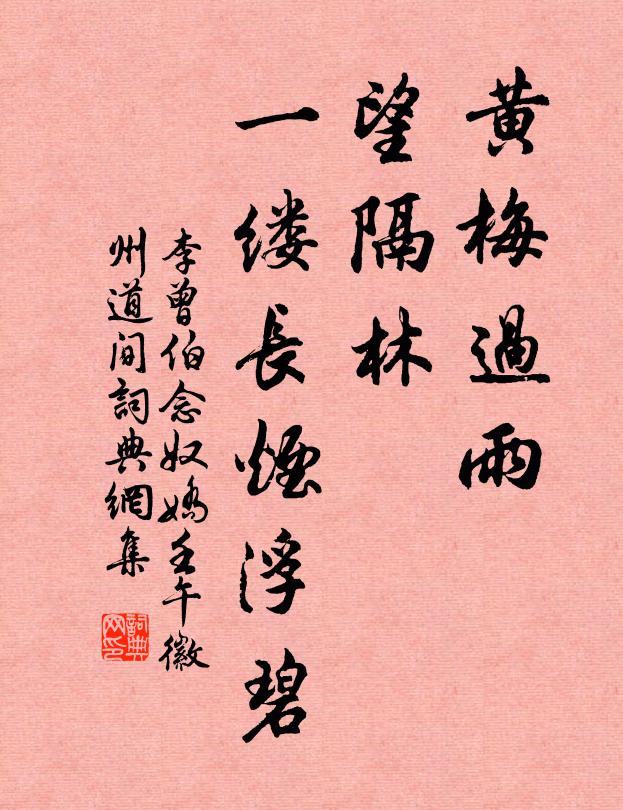 黄梅過雨
望隔林
一缕長煙浮碧
李曾伯念奴嬌壬午徽
州道间詞典網集
詞典网印